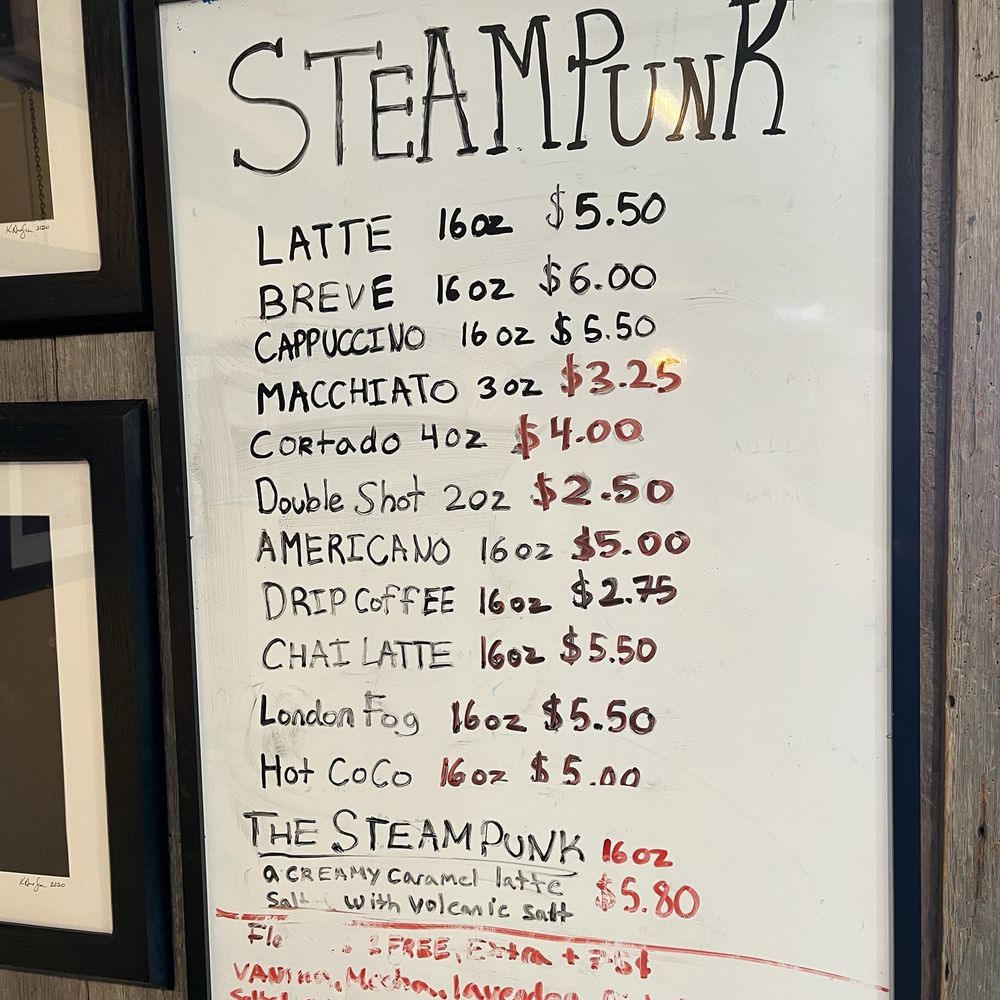 STEAMPUNK
LATTE 16oz $5.50
BREVE 16oz $6.00
CAPPUCCINO 16oz $5.50
MACCHIATO 3oz $3.25
Cortado 4oz $4.00
Double Shot 2oz $2.50
AMERICANO 16oz $5.00
DRIP CoffEE 16oz $2.75
CHAI LATTE 16oz $5.50
London Fog 16oz $5.50
Hot CoCo 16oz $5.00
THE STEAMPUNK 16oz
a CREAMY Caramel latte
Salt with Volcanic Salt $5.80
1 FREE, Extra + 75¢
VANilla, Mocha, lavender,
2020
2020